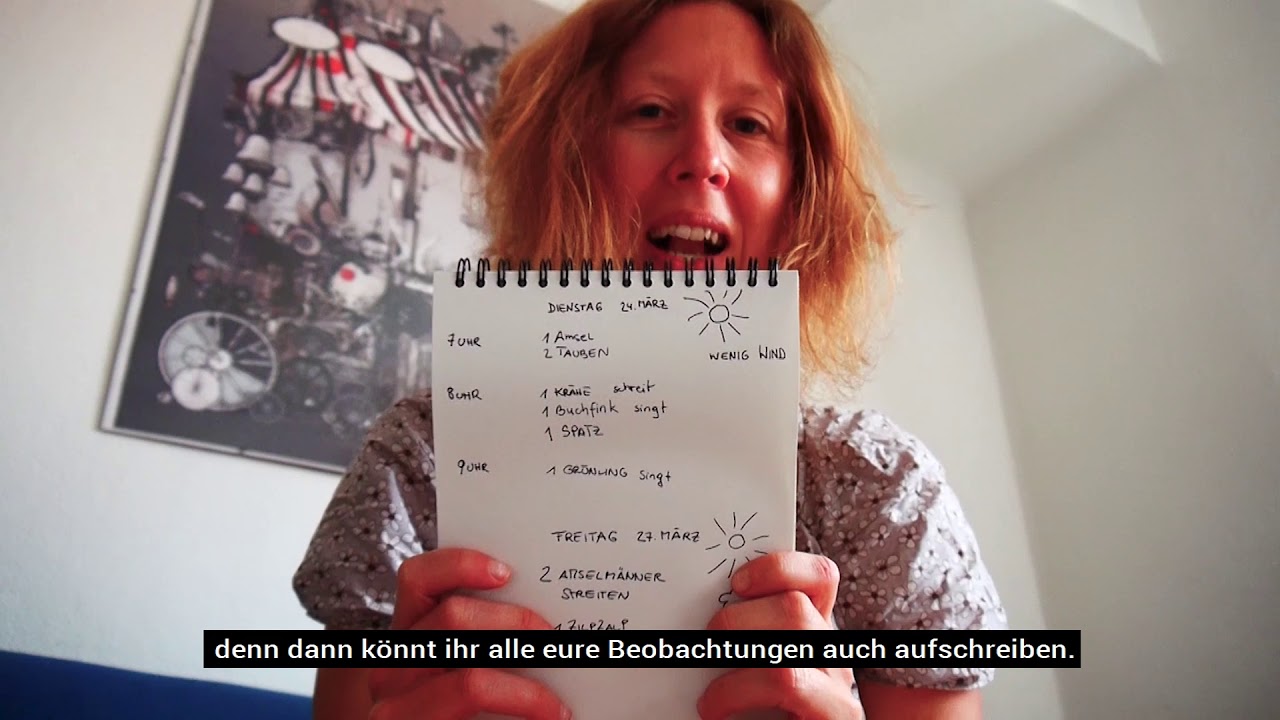 DIENSTAG 24. MÄRZ
7 UHR 1 Amsel
2 TAUBEN
WENIG WIND
8 UHR 1 KRÄHE schreit
1 Buchfink singt
1 SPATZ
9 UHR 1 GRÜNLING singt
FREITAG 27. MÄRZ
2 AMSELMÄNNER
STREITEN
1 ZILPZALP
denn dann könnt ihr alle eure Beobachtungen auch aufschreiben.